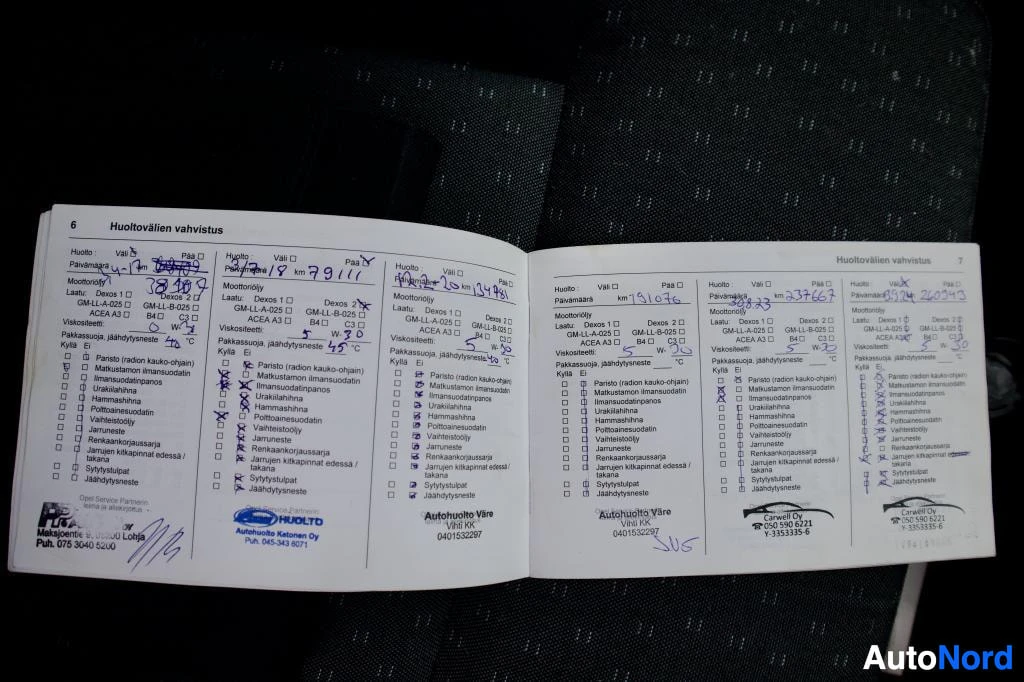 6 Huoltovälien vahvistus
Huolto : Väli Pää
Päivämäärä 4-17 km
38107
Moottoriöljy
Laatu: Dexos 1 Dexos 2
GM-LL-A-025 GM-LL-B-025
ACEA A3 B4 C3
Viskositeetti: 0 W-
Pakkassuoja, jäähdytysneste 40 °C
Kyllä Ei
Paristo (radion kauko-ohjain)
Matkustamon ilmansuodatin
Ilmansuodatinpanos
Urakiilahihna
Hammashihna
Polttoainesuodatin
Vaihteistoöljy
Jarruneste
Renkaankorjaussarja
Jarrujen kitkapinnat edessä /
takana
Sytytystulpat
Jäähdytysneste
Opel Service Partnerin
leima ja allekirjoitus
Maksjoentie 9, Lohja
Puh. 075 3040 5200
Huolto : Väli Pää
Päivämäärä 3/7-18 km 79111
Moottoriöljy
Laatu: Dexos 1 Dexos 2
GM-LL-A-025 GM-LL-B-025
ACEA A3 B4 C3
Viskositeetti: 5 W-30
Pakkassuoja, jäähdytysneste 45 °C
Kyllä Ei
Paristo (radion kauko-ohjain)
Matkustamon ilmansuodatin
Ilmansuodatinpanos
Urakiilahihna
Hammashihna
Polttoainesuodatin
Vaihteistoöljy
Jarruneste
Renkaankorjaussarja
Jarrujen kitkapinnat edessä /
takana
Sytytystulpat
Jäähdytysneste
HUOLTO
Autohuolto Ketonen Oy
Puh. 045-343 6071
Huolto : Väli Pää
Päivämäärä 12.2-20 km 134781
Moottoriöljy
Laatu: Dexos 1 Dexos 2
GM-LL-A-025 GM-LL-B-025
ACEA A3 B4 C3
Viskositeetti: 5 W-30
Pakkassuoja, jäähdytysneste -40 °C
Kyllä Ei
Paristo (radion kauko-ohjain)
Matkustamon ilmansuodatin
Ilmansuodatinpanos
Urakiilahihna
Hammashihna
Polttoainesuodatin
Vaihteistoöljy
Jarruneste
Renkaankorjaussarja
Jarrujen kitkapinnat edessä /
takana
Sytytystulpat
Jäähdytysneste
Autohuolto Väre
Vihti KK
0401532297
Huoltovälien vahvistus 7
Huolto : Väli Pää
Päivämäärä km 191076
Moottoriöljy
Laatu: Dexos 1 Dexos 2
GM-LL-A-025 GM-LL-B-025
ACEA A3 B4 C3
Viskositeetti: 5 W-30
Pakkassuoja, jäähdytysneste °C
Kyllä Ei
Paristo (radion kauko-ohjain)
Matkustamon ilmansuodatin
Ilmansuodatinpanos
Urakiilahihna
Hammashihna
Polttoainesuodatin
Vaihteistoöljy
Jarruneste
Renkaankorjaussarja
Jarrujen kitkapinnat edessä /
takana
Sytytystulpat
Jäähdytysneste
Autohuolto Väre
Vihti KK
0401532297
Huolto : Väli Pää
Päivämäärä 30.8.23 km 237667
Moottoriöljy
Laatu: Dexos 1 Dexos 2
GM-LL-A-025 GM-LL-B-025
ACEA A3 B4 C3
Viskositeetti: 5 W-30
Pakkassuoja, jäähdytysneste °C
Kyllä Ei
Paristo (radion kauko-ohjain)
Matkustamon ilmansuodatin
Ilmansuodatinpanos
Urakiilahihna
Hammashihna
Polttoainesuodatin
Vaihteistoöljy
Jarruneste
Renkaankorjaussarja
Jarrujen kitkapinnat edessä /
takana
Sytytystulpat
Jäähdytysneste
Carwell Oy
☎ 050 590 6221
Y-3353335-6
Huolto : Väli Pää
Päivämäärä km 260343
Moottoriöljy
Laatu: Dexos 1 Dexos 2
GM-LL-A-025 GM-LL-B-025
ACEA A3 B4 C3
Viskositeetti: 5 W-30
Pakkassuoja, jäähdytysneste °C
Kyllä Ei
Paristo (radion kauko-ohjain)
Matkustamon ilmansuodatin
Ilmansuodatinpanos
Urakiilahihna
Hammashihna
Polttoainesuodatin
Vaihteistoöljy
Jarruneste
Renkaankorjaussarja
Jarrujen kitkapinnat edessä /
takana
Sytytystulpat
Jäähdytysneste
Carwell Oy
☎ 050 590 6221
Y-3353335-6
AutoNord